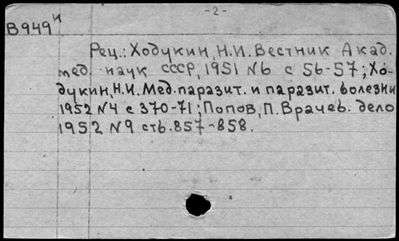 -2-
В949и
Рец.: Ходукин, Н.И. Вестник Акад.
мед. наук СССР, 1951 №6 с 56-57; Хо-
дукин, Н.И. Мед.паразит. и паразит. болезни
1952 №4 с 370-71; Попов, П. Врачев. дело
1952 №9 стб.857-858.